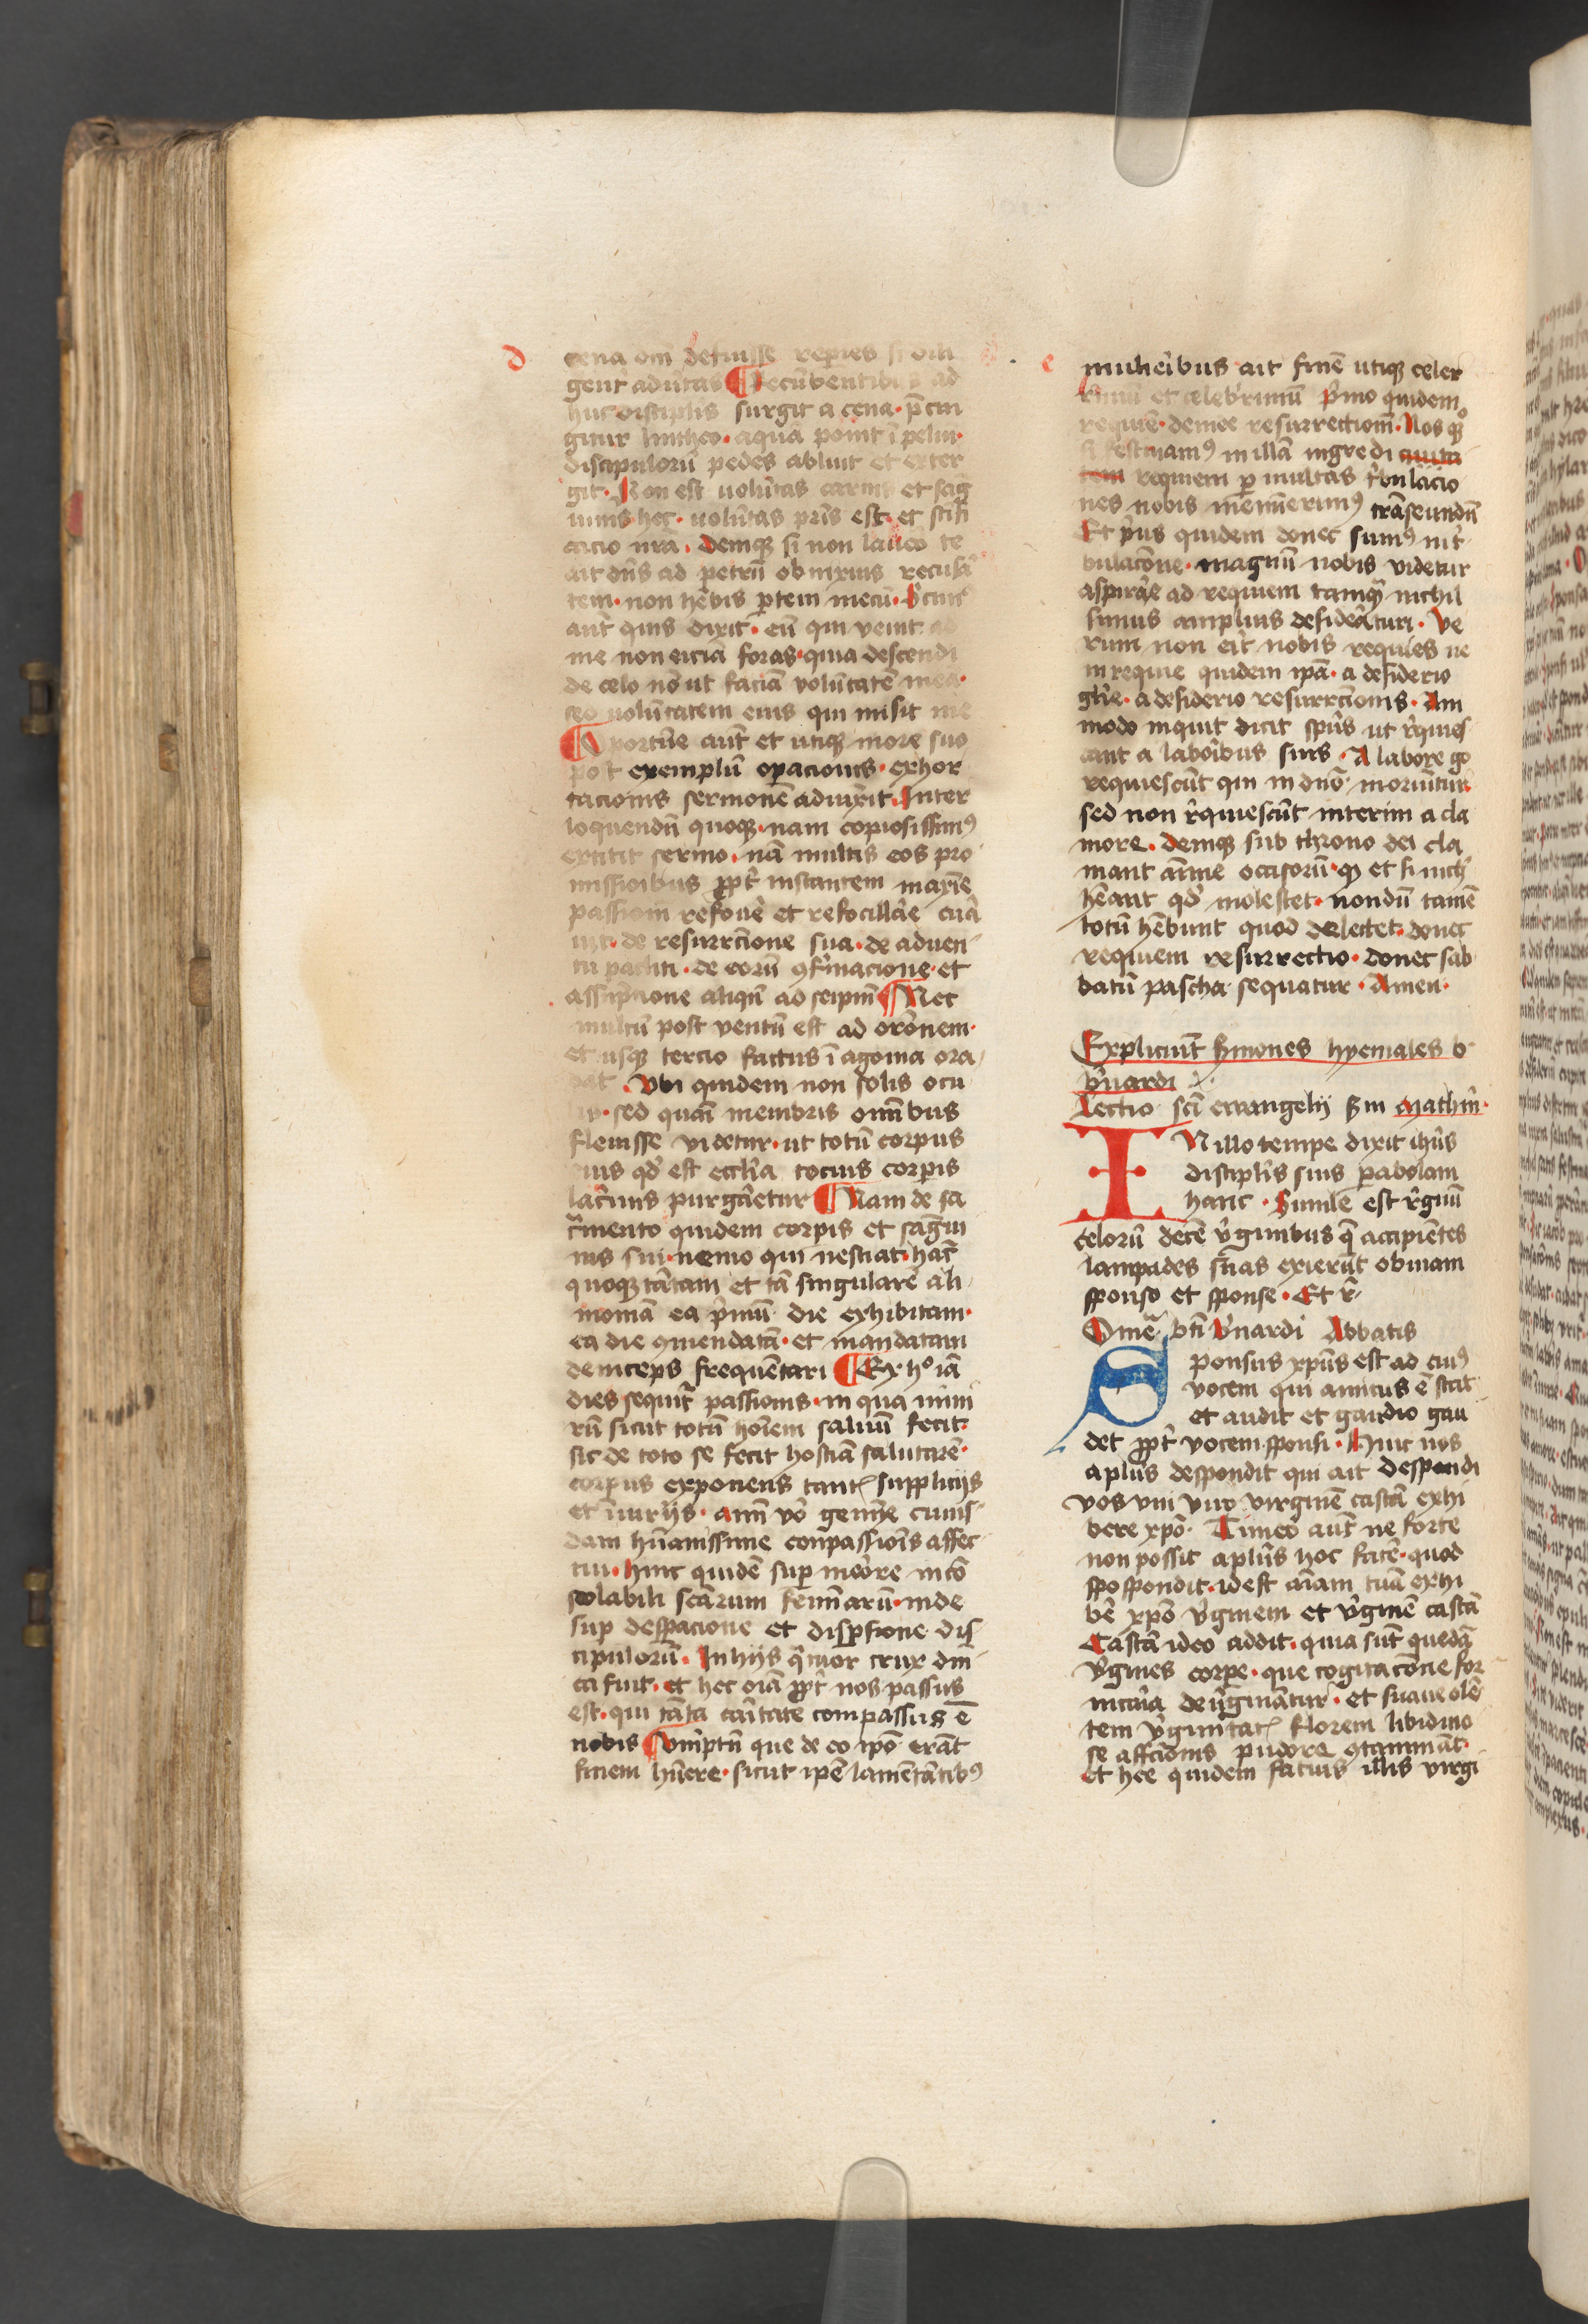 d
cena om̄ defuisse repies si dili
gent̉ adu̾tas ¶ Recūbentibus ad
huc discip̄lis surgit a cena · p̄cin
gitur lintheo · aquā ponit ī peluī ·
discipulorū pedes abluit et exter
git · Non est uolu̾tas carnis et sāg
uinis hec · uolu̾tas pr̄is est · et sc̄ifi
cacio nr̄a · Deniqꝫ si non lauero te
ait dn̄s ad petrū obnixius recusā
tem · non hēbis ꝑtem mecū ·
aut̄ quis dixit · eū qui venit ad
me non eiciā foras · quia descendi
de celo nō ut faciā volūtatē meā ·
sed uolūtatem eius qui misit me
Oportūe aut̄ et utiqꝫ more suo
post exemplū oꝑacionis · exhor
tacionis sermonē adiūxit · Inter
loquendū quoqꝫ · nam copiosissimꝰ
extitit sermo · nā multis eos pro
missionibus ꝓpt̉ instantem maxīe
passionī refoue᷑ et refocillar̄e cura
uit · de resurrc̄ione sua · de aduen
tu pacliti · de eorū ꝯfirmacione · et
assūpcione aliqn̄ ad seip̄m ¶ Nec
multū post ventū est ad orōnem ·
et usqꝫ tercio factus ī agonia ora
bat · Vbi quidem non solis ocu
lis · sed quasi membris om̄ibus
fleuisse videtur · ut totū corpus
eius qd̄ est eccl̄ia tocius corpis
lacrīis purgaretur ¶ Nam de sa
cr̄mento quidem corpis et sāgui
nis sui · nemo qui nesciat · hāc
quoqꝫ tātam et tā singularē ali
moniam ea p̄mū die exhibitam ·
ea die ꝯmendatā · et mandatam
deinceps frequētari ¶ Ex hͦ iā
dies sequit̉ passionis · in qua nimi
rū sicut totū hoīem saluū fecit ·
sic de toto se fecit hostiā salutarē ·
corpus exponens tantis supplicijs
et īiurijs · aīm vō gemīe cuius
dam hūanissime conpassiōis affec
tui · hinc quidē sup merore incō
solabili sc̄arum femīarū · inde
sup desꝑacione et disꝑsione dis
cipulorū · In hijs q̄tuor crux dn̄i
ca fuit · et hec oīa ꝓpt̉ nos passus
est · qui tāta caritate compassus ē
nobis ¶ Vmptn̄ que de eo ip̄o erāt
finem hūere · sicut ip̄e lamētātibꝰ
e
mulieribus ait finē utiqꝫ celer
rimū et celeb̾rimū p̄mo quidem
requiē · demde resurrectionī · Nos qͦꝫ
si festinamꝰ in illā ingredi ciuita
tem requiem ꝑ multas t̾bulacio
nes nobis meminerimꝰ trāseundū
Et p̾us quidem donec sumꝰ in t̾
bulacōne · magnū nobis videtur
aspirar̄e ad requiem tamqͣ nichil
simus amplius desideraturi · Ve
rum non erit nobis requies ne
in requie quidem ip̄a · a desiderio
glīe · a desiderio resurrc̄ionis · Am
modo inquit dicit sp̄us ut r̾quies
cant a laboribus suis · A labore gͦ
requiescūt qui in dn̄o moriūtur
sed non r̾quiescūt interim a cla
more · Deniqꝫ sub throno dei cla
mant aīme occisorū · qꝫ et si nich̾
hēant qd̾ molestet · nondū tamē
totū hēbunt quod delectet · donec
requiem resurrectio · donec sab
batū pascha sequatur · Amen ·
Expliciūt sermones hyemales b·
b̾nardi
Lectio sc̄i ewangelij s̄m Mathm̄ ·
IN illo tempe dixit ihūs
discipl̄is suis ꝑabolam
hanc · Simile est r̾gnū
celorū decē v̾ginibus q̄ accipiētes
lampades suas exierūt obuiam
sponso et sponse · Et r̾
Omeͣ · bt̄i b̾nardi Abbatis
Sponsus xp̄us est ad cuiꝰ
vocem qui amicus ē stat
et audit et gaudio gau
det ꝓpt̉ vocem sponsi · Hinc nos
aplūs despondit qui ait Despondi
vos vni viro virginē castā exhi
bere xp̄o · Timeo aut̄ ne forte
non possit aplūs hoc facē · quod
spospondit · id est aīam tuā exhi
bē xp̄o v̾ginem et v̾ginē castā
Castā ideo addit · quia sūt quedā
v̾gines corpe · que cogitacōne for
nicaria deu̾ginātur · et suaueolē
tem v̾ginitatis florem libidino
se affc̄ionis pudore ꝯtaminat ·
et hee quidem fatuis illis virgi